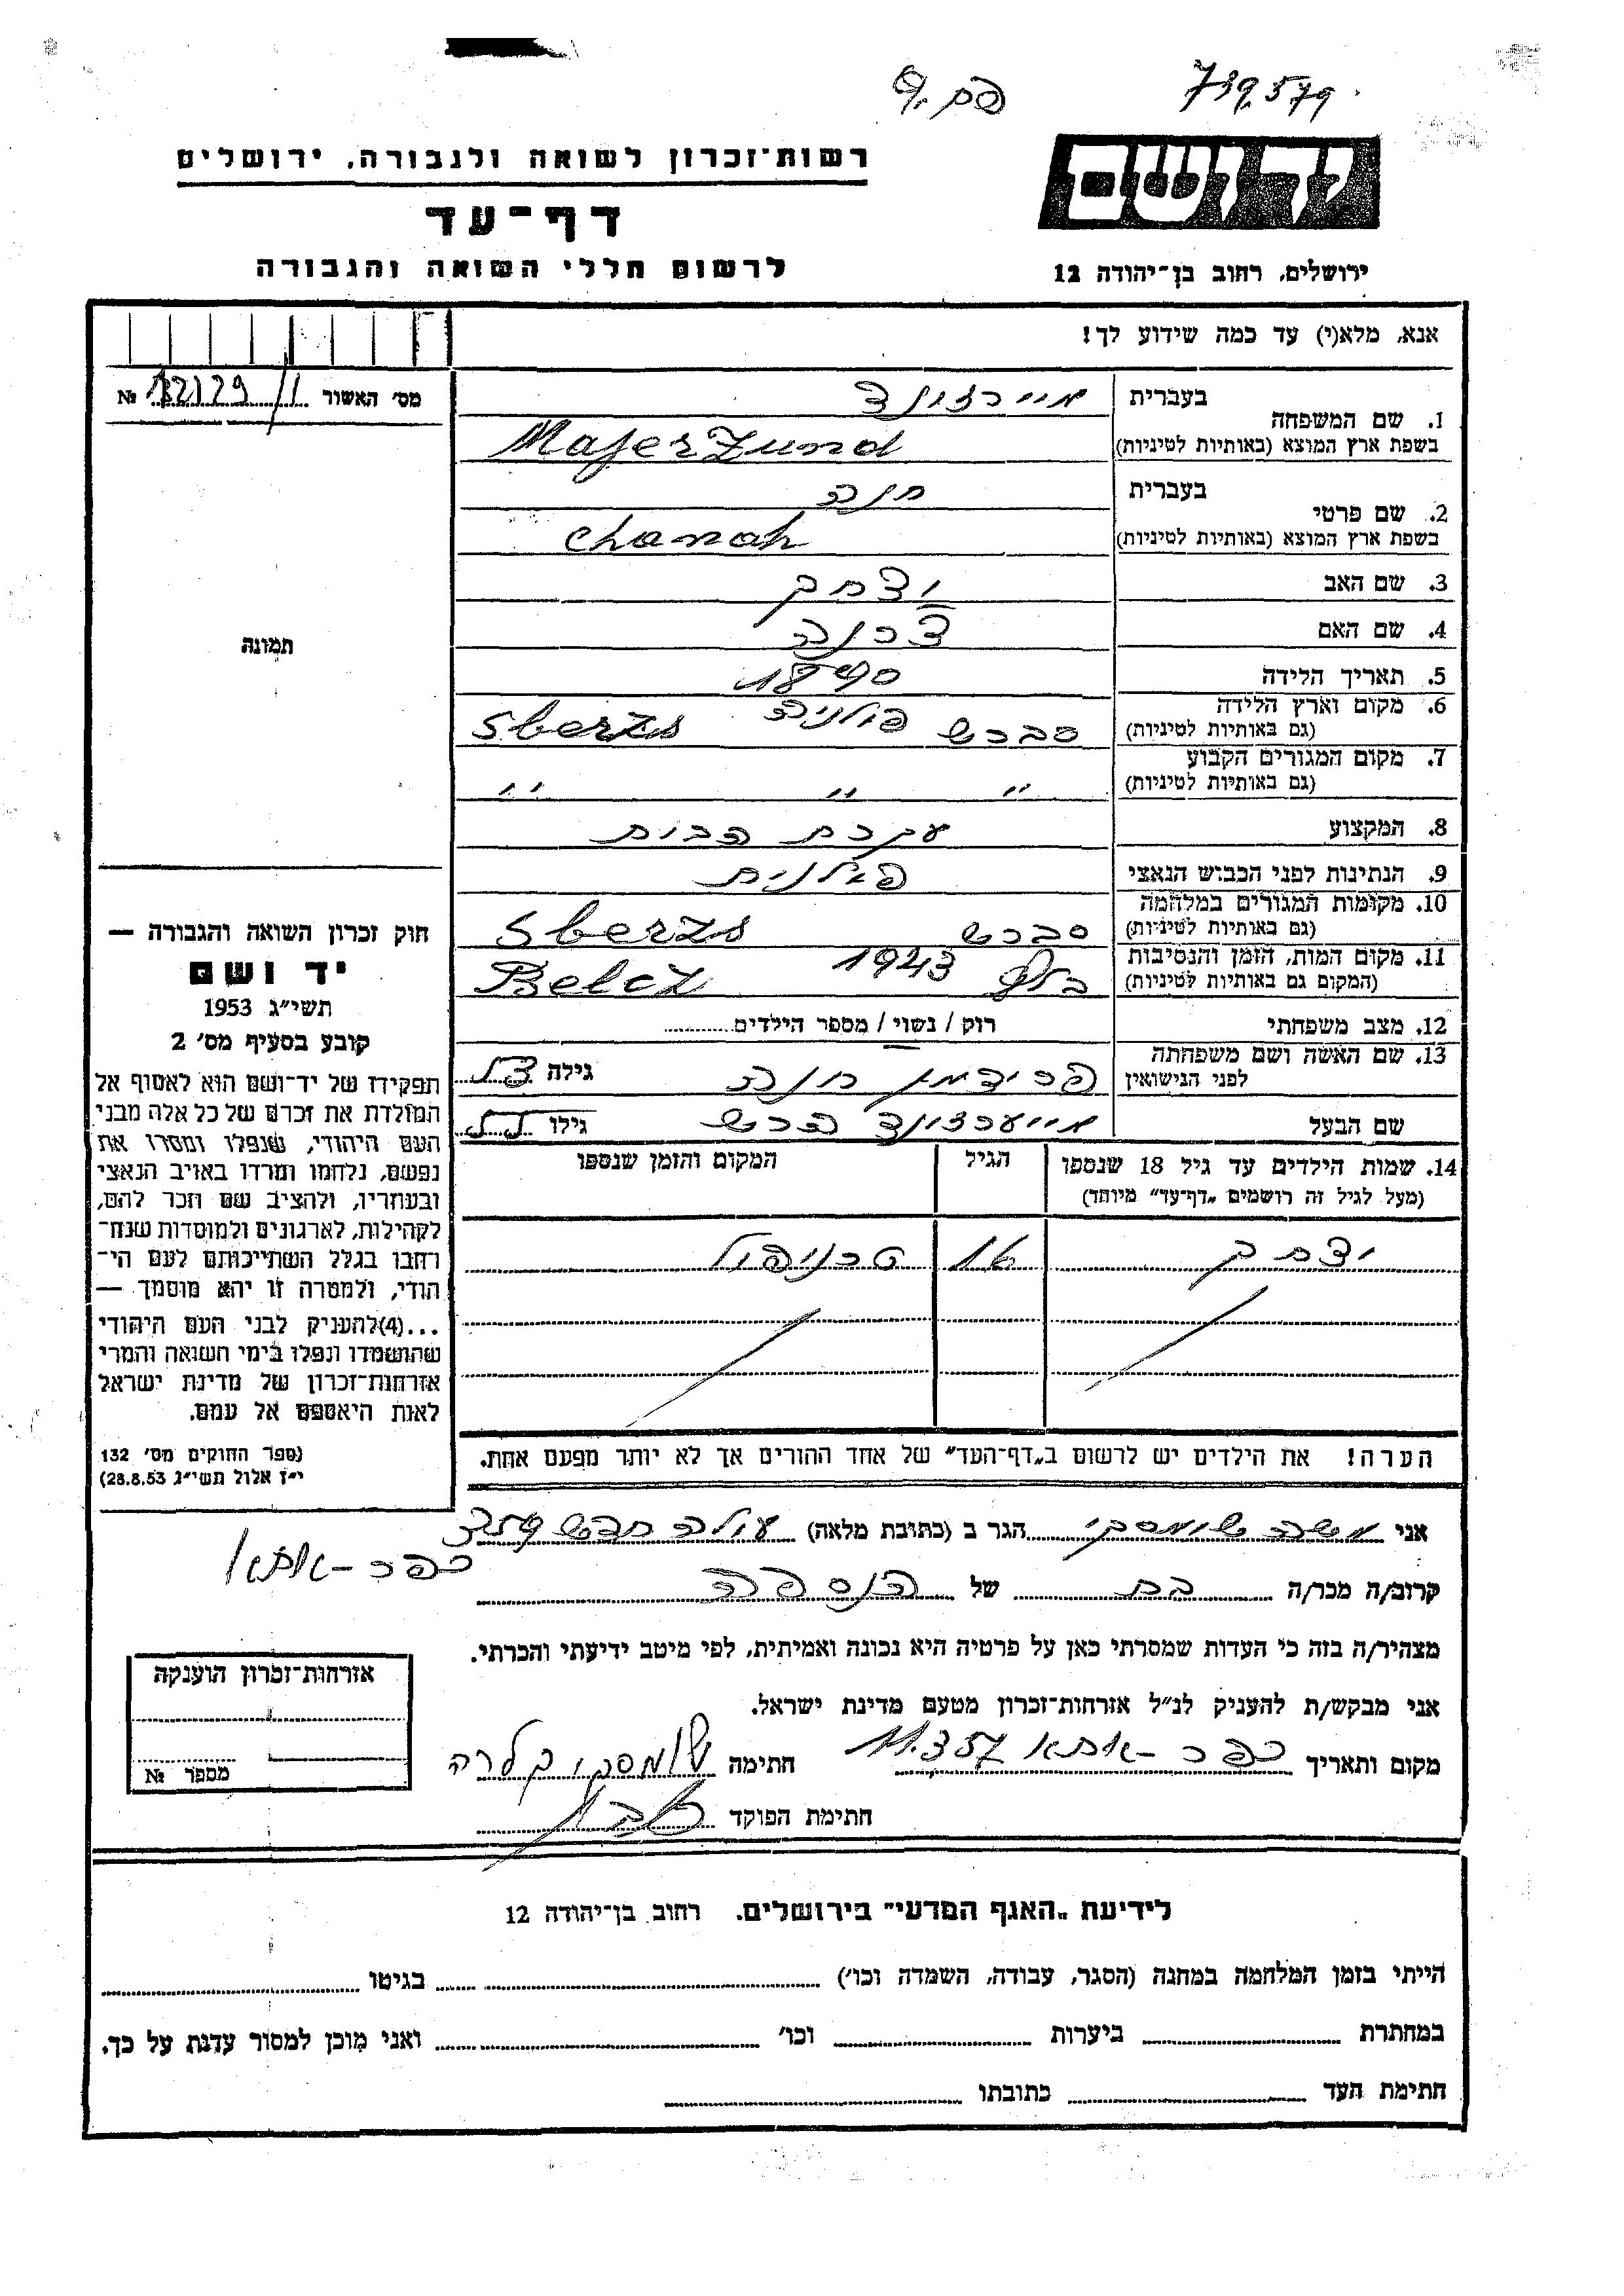 739.579
רשות־זכרון לשואה ולגבורה, ירושלים
ידושם
דף־עד
לרשום חללי השואה והגבורה
ירושלים, רחוב בן־יהודה 12
אנא, מלא(י) עד כמה שידוע לך!
מס' האשור № 12129
1. שם המשפחה
בעברית מיירזונד
בשפת ארץ המוצא (באותיות לטיניות) Majer Zund
2. שם פרטי
בעברית חנה
בשפת ארץ המוצא (באותיות לטיניות) Chanah
3. שם האב יצחק
4. שם האם
תמונה
5. תאריך הלידה 1890
6. מקום וארץ הלידה
(גם באותיות לטיניות) סברש פולניה Sberzs
7. מקום המגורים הקבוע
(גם באותיות לטיניות) " " "
8. המקצוע עקרת הבית
9. הנתינות לפני הכבוש הנאצי פולנית
10. מקומות המגורים במלחמה
(גם באותיות לטיניות) סברש Sberzs
11. מקום המות, הזמן והנסיבות
(המקום גם באותיות לטיניות) בלץ 1943 Belcz
12. מצב משפחתי רוק / נשוי / מספר הילדים
13. שם האשה ושם משפחתה
לפני הנישואין פרידמן חנה גילה
שם הבעל מייערזונד הרש גילו
14. שמות הילדים עד גיל 18 שנספו הגיל המקום והזמן שנספו
(מעל לגיל זה רושמים „דף־עד" מיוחד)
יצחק 16 טרניפול
הערה! את הילדים יש לרשום ב„דף־העד" של אחד ההורים אך לא יותר מפעם אחת.
חוק זכרון השואה והגבורה —
יד ושם
תשי"ג 1953
קובע בסעיף מס' 2
תפקידו של יד־ושם הוא לאסוף אל
המולדת את זכרם של כל אלה מבני
העם היהודי, שנפלו ומסרו את
נפשם, נלחמו ומרדו באויב הנאצי
ובעוזריו, ולהציב שם וזכר להם,
לקהילות, לארגונים ולמוסדות שנח־
רבו בגלל השתייכותם לעם הי־
הודי, ולמטרה זו יהא מוסמך —
...(4) להעניק לבני העם היהודי
שהושמדו ונפלו בימי השואה והמרי
אזרחות־זכרון של מדינת ישראל
לאות היאספם אל עמם.
(ספר החוקים מס' 132
י"ז אלול תשי"ג 28.8.53)
אני שומסקי הגר ב (כתובת מלאה) עולה חדש
כפר־אתא
קרוב/ה מכר/ה בת של הנספה
מצהיר/ה בזה כי העדות שמסרתי כאן על פרטיה היא נכונה ואמיתית, לפי מיטב ידיעתי והכרתי.
אני מבקש/ת להעניק לנ"ל אזרחות־זכרון מטעם מדינת ישראל.
מקום ותאריך כפר־אתא 11.3.57 חתימה שומסקי קלרה
חתימת הפוקד
אזרחות־זכרון הוענקה
מספר №
לידיעת „האגף המדעי" בירושלים, רחוב בן־יהודה 12
הייתי בזמן המלחמה במחנה (הסגר, עבודה, השמדה וכו') בגיטו
במחתרת ביערות וכו' ואני מוכן למסור עדות על כך.
חתימת העד כתובתו